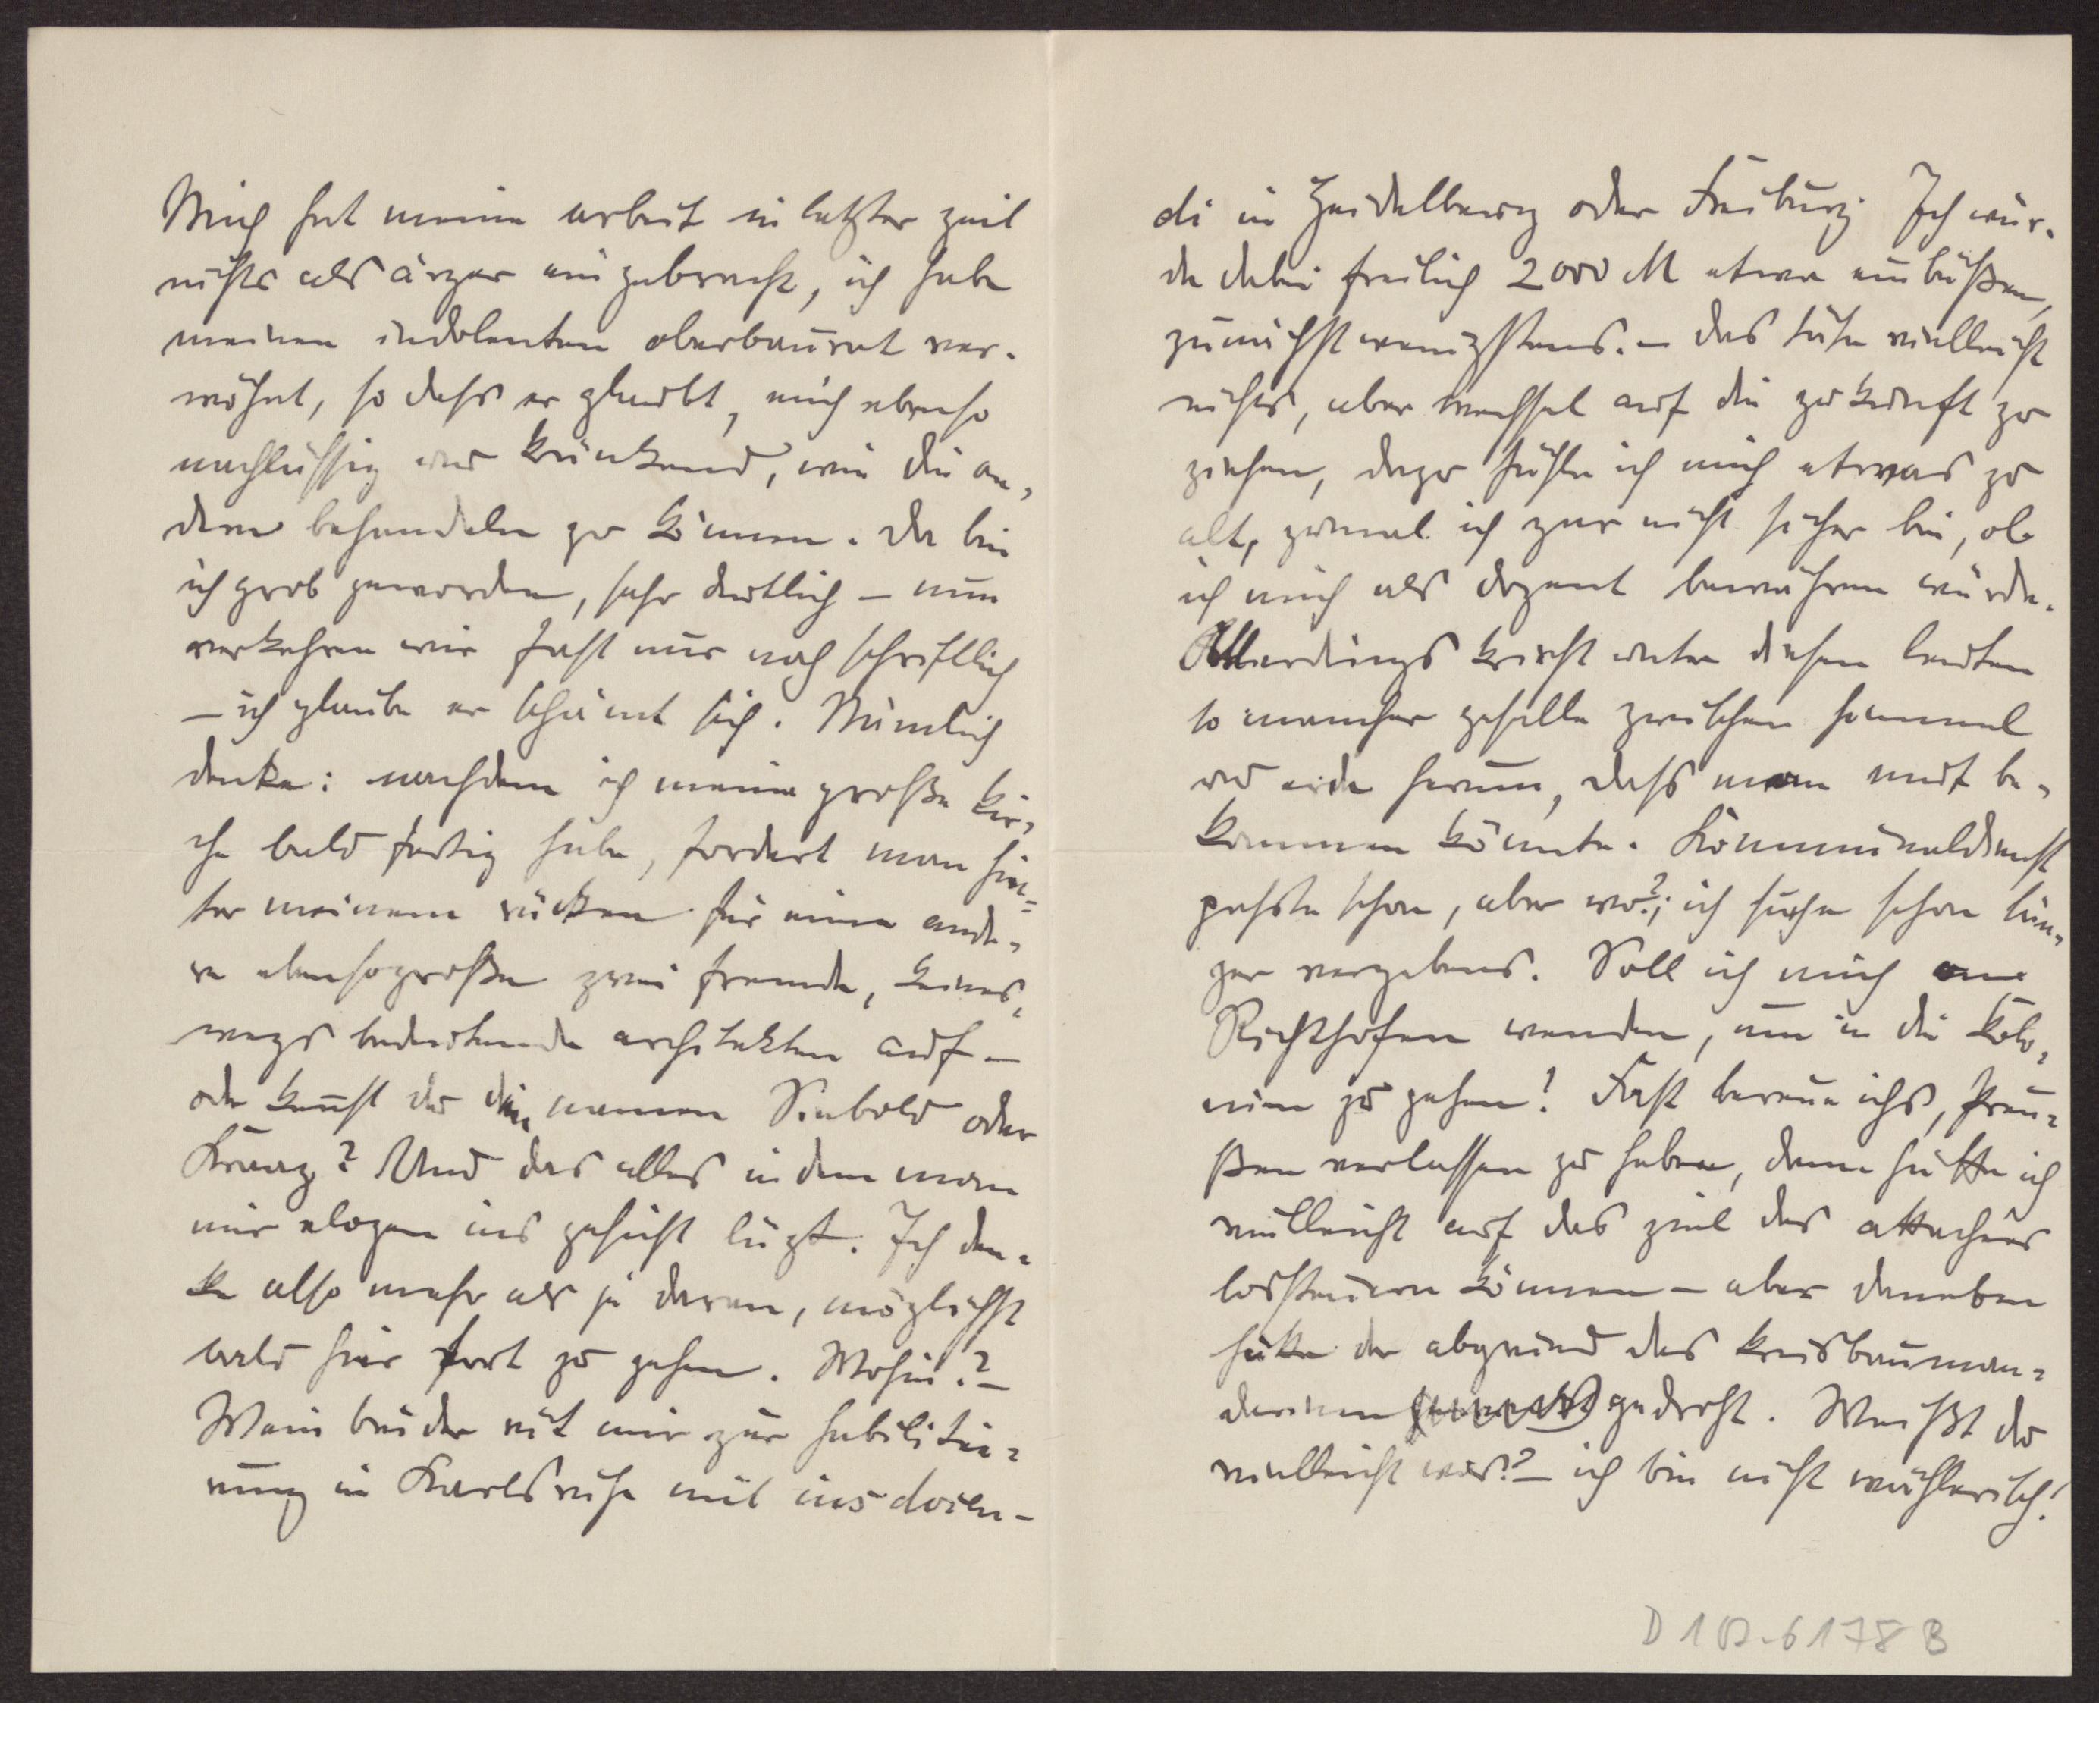 Mich hat meine arbeit in letzter zeit
nichts als ärger eingebracht, ich habe
meinen indolenten oberbaurat ver-
wöhnt, so dass er glaubt, mich ebenso
nachlässig und kränkend, wie die an-
dern behandeln zu können. Da bin
ich grob geworden, sehr deutlich – nun
verkehren wir fast nur noch schriftlich
– ich glaube er schämt sich. Nämlich
denke: nachdem ich meine große kir-
che bald fertig habe, fordert man hin-
ter meinem rücken für eine ande-
re ebensogroße zwei fremde, keines-
wegs bedeutende architekten auf –
oder kennst du die namen Siebold oder
Kraaz? Und das alles indem man
mir elogen ins gesicht lügt. Ich den-
ke also mehr als je daran, möglichst
bald hier fort zu gehen. Wohin? –
Mein bruder rät mir zur habilitie-
rung in Karlsruhe mit ius docen-
di in Heidelberg oder Freiburg. Ich wür-
de dabei freilich 2000 M etwa einbüßen,
zunächst wenigstens. – das täte vielleicht
nichts, aber wechsel auf die zukunft zu
ziehen, dazu fühle ich mich etwas zu
alt, zumal ich gar nicht sicher bin, ob
ich mich als dozent bewähren würde.
Allerdings kriecht unter diesen leuten
so mancher geselle zwischen himmel
und erde herum, dass man mut be-
kommen könnte. Kommunaldienst
passte schon, aber wo?; ich suche schon län-
ger vergebens. Soll ich mich an
Richthofen wenden, um in die kolo-
nien zu gehen! Fast bereue ichs, Preu-
ßen verlassen zu haben, denn hätte ich
vielleicht auf das ziel des attachés
lossteuern können – aber daneben
hätte der abgrund des kreisbauman-
darinen gedroht. Weißt du
vielleicht was? – ich bin nicht wählerisch!
D 10.6178 B